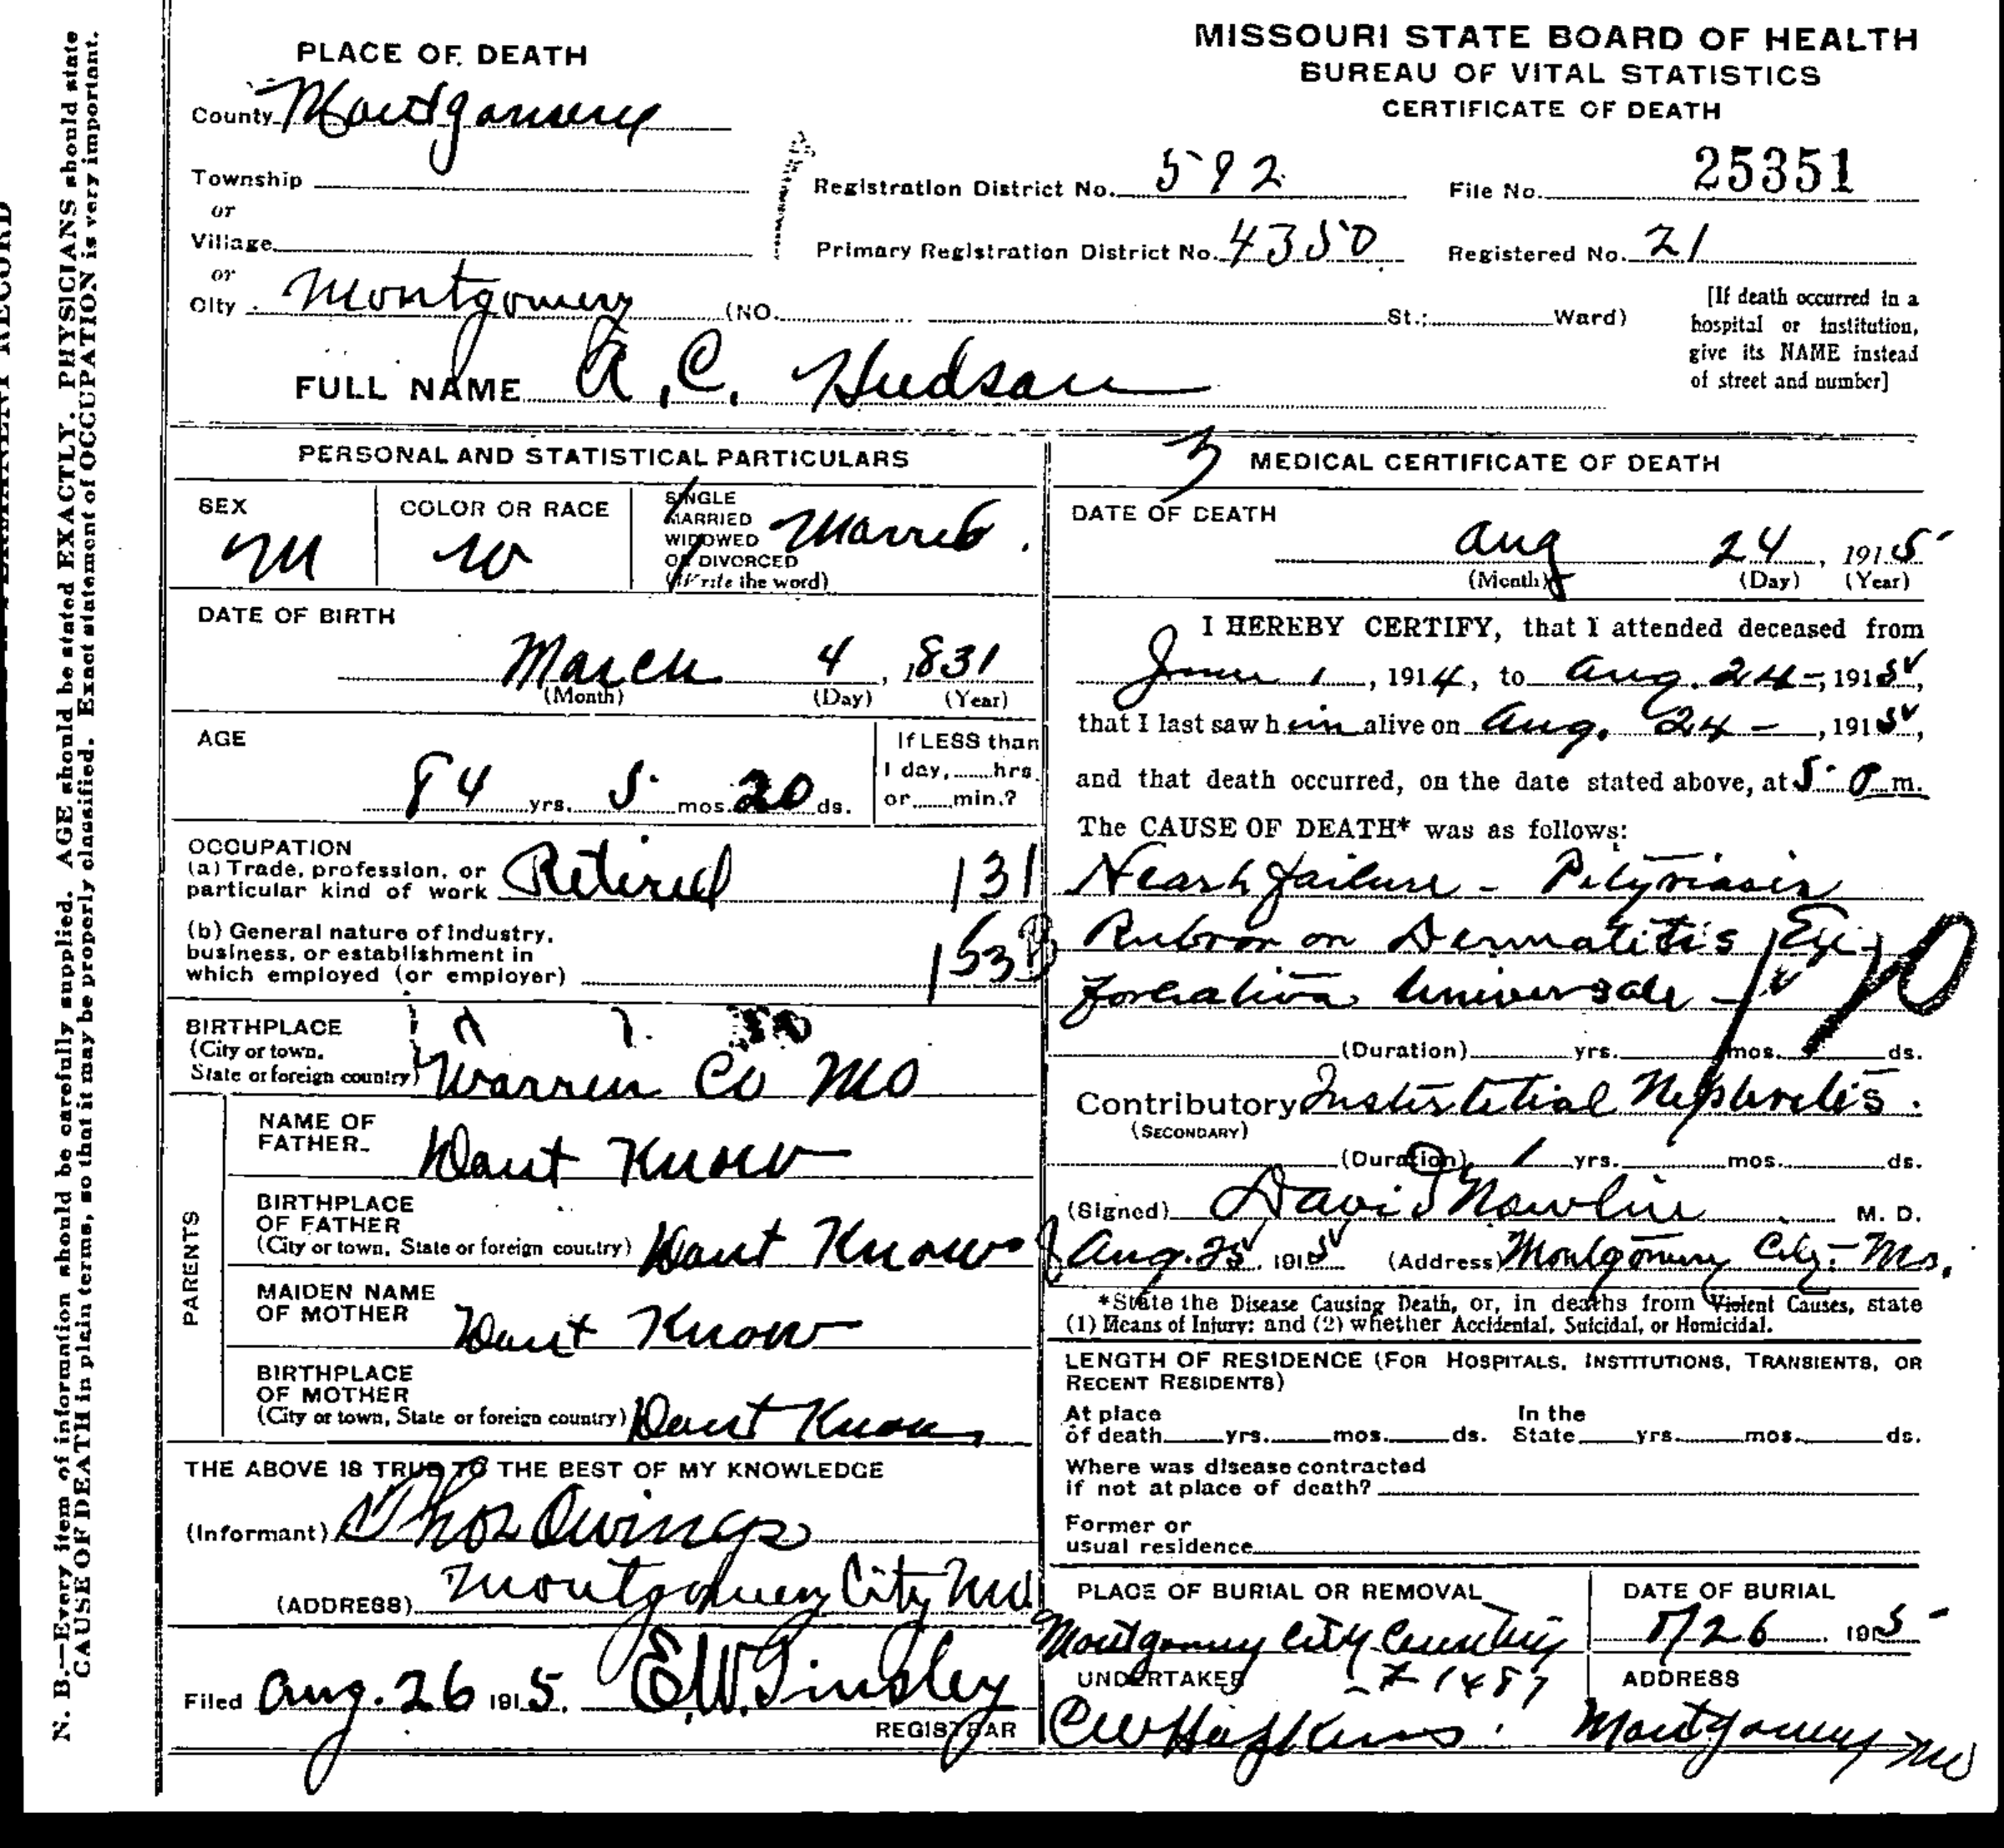 MISSOURI STATE BOARD OF HEALTH
BUREAU OF VITAL STATISTICS
CERTIFICATE OF DEATH
PLACE OF DEATH
County Montgomery
Township
or
Village
or
City Montgomery (NO. St.; Ward)
Registration District No. 592
File No. 25351
Primary Registration District No. 4350
Registered No. 21
[If death occurred in a
hospital or institution,
give its NAME instead
of street and number]
FULL NAME A. C. Hudson
PERSONAL AND STATISTICAL PARTICULARS
SEX
M
COLOR OR RACE
W
SINGLE
MARRIED
WIDOWED
OR DIVORCED
(Write the word)
Married
DATE OF BIRTH
March 4, 1831
(Month) (Day) (Year)
AGE
84 yrs. 5 mos. 20 ds.
If LESS than
1 day, hrs.
or min.?
OCCUPATION
(a) Trade, profession, or
particular kind of work Retired
131
(b) General nature of industry,
business, or establishment in
which employed (or employer)
BIRTHPLACE
(City or town,
State or foreign country) Warren Co Mo
PARENTS
NAME OF
FATHER Dont Know
BIRTHPLACE
OF FATHER
(City or town, State or foreign country) Dont Know
MAIDEN NAME
OF MOTHER Dont Know
BIRTHPLACE
OF MOTHER
(City or town, State or foreign country) Dont Know
THE ABOVE IS TRUE TO THE BEST OF MY KNOWLEDGE
(Informant) Thos Owings
(ADDRESS) Montgomery City Mo
Filed Aug. 26 1915. E.W. Tinsley
REGISTRAR
3
MEDICAL CERTIFICATE OF DEATH
DATE OF DEATH
Aug 24, 1915
(Month) (Day) (Year)
I HEREBY CERTIFY, that I attended deceased from
June 1, 1914, to Aug. 24-, 1915,
that I last saw him alive on Aug. 24-, 1915,
and that death occurred, on the date stated above, at 5 P m.
The CAUSE OF DEATH* was as follows:
Heart failure - Pityriasis
Rubra or Dermatitis Ex-
foliativa Universale -
(Duration) yrs. mos. ds.
Contributory Interstitial Nephritis.
(SECONDARY)
(Duration) 1 yrs. mos. ds.
(Signed) David Nowlin M. D.
Aug. 25, 1915 (Address) Montgomery City - Mo.
*State the Disease Causing Death, or, in deaths from Violent Causes, state
(1) Means of Injury; and (2) whether Accidental, Suicidal, or Homicidal.
LENGTH OF RESIDENCE (FOR HOSPITALS, INSTITUTIONS, TRANSIENTS, OR
RECENT RESIDENTS)
At place
of death yrs. mos. ds.
In the
State yrs. mos. ds.
Where was disease contracted
if not at place of death?
Former or
usual residence
PLACE OF BURIAL OR REMOVAL
Montgomery City
DATE OF BURIAL
8/26 1915
UNDERTAKER
1487
ADDRESS
Montgomery Mo
N. B.—Every item of information should be carefully supplied. AGE should be stated EXACTLY. PHYSICIANS should state
CAUSE OF DEATH in plain terms, so that it may be properly classified. Exact statement of OCCUPATION is very important.